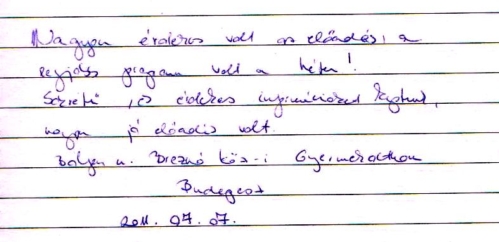 Nagyon érdekes volt az előadás, a
program volt a héten!
és érdekes információkat kaptunk,
nagyon jó előadás volt.
Bolyai u. Breznó köz-i Gyermekotthon
Budapest
2011. 07. 07.